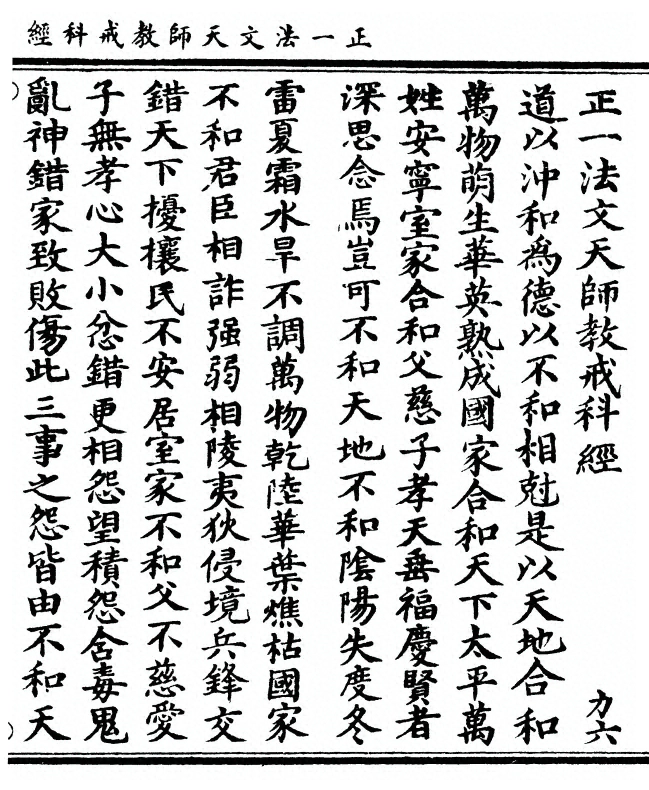 正一法文天師教戒科經
正一法文天師教戒科經 力六
道以沖和為德以不和相尅是以天地合和
萬物萌生華英熟成國家合和天下太平萬
姓安寧室家合和父慈子孝天垂福慶賢者
深思念焉豈可不和天地不和陰陽失度冬
雷夏霜水旱不調萬物乾陸華葉燋枯國家
不和君臣相詐强弱相陵夷狄侵境兵鋒交
錯天下擾攘民不安居室家不和父不慈愛
子無孝心大小忿錯更相怨望積怨含毒鬼
亂神錯家致敗傷此三事之怨皆由不和天